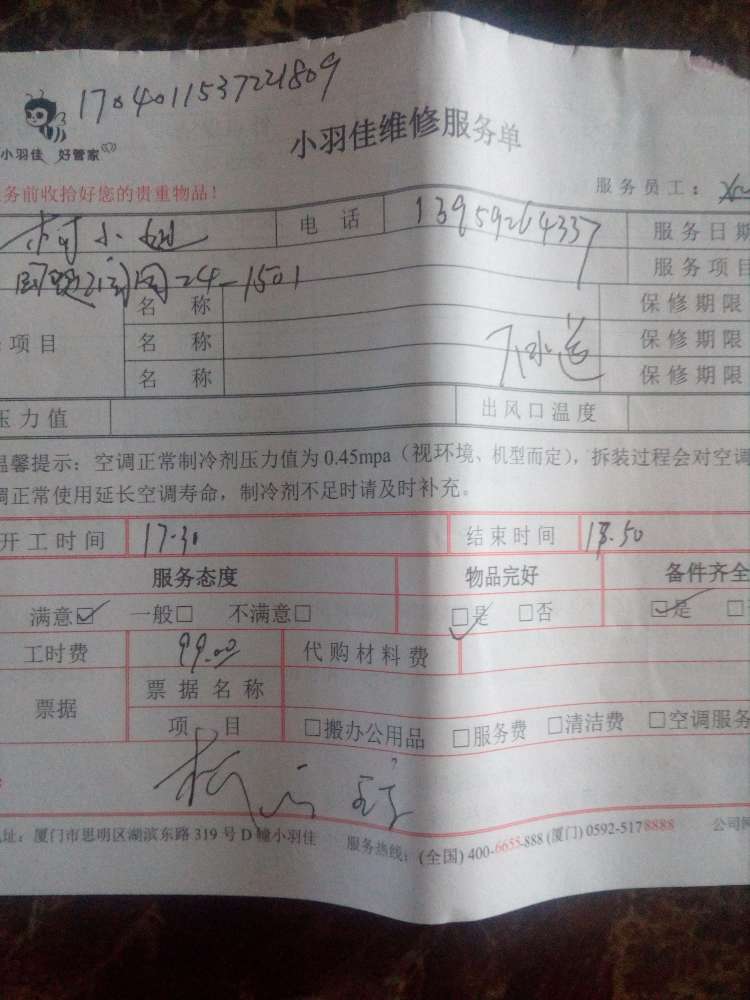 1704011537221809
小羽佳 好管家
小羽佳维修服务单
务前收拾好您的贵重物品！ 服务员工：
小 电话 13959264337 服务日期
24-1501 服务项目
名称 保修期限
项目 名称 下水道 保修期限
名称 保修期限
压力值 出风口温度
温馨提示：空调正常制冷剂压力值为0.45mpa（视环境、机型而定），拆装过程会对空调
调正常使用延长空调寿命，制冷剂不足时请及时补充。
开工时间 17.30 结束时间 18.50
服务态度 物品完好 备件齐全
满意☑ 一般□ 不满意□ ☑是 □否 ☑是 □
工时费 99.00 代购材料费
票据 票据名称
项目 □搬办公用品 □服务费 □清洁费 □空调服务
址：厦门市思明区湖滨东路319号D幢小羽佳 服务热线：(全国)400-6655-888 (厦门)0592-5178888 公司网